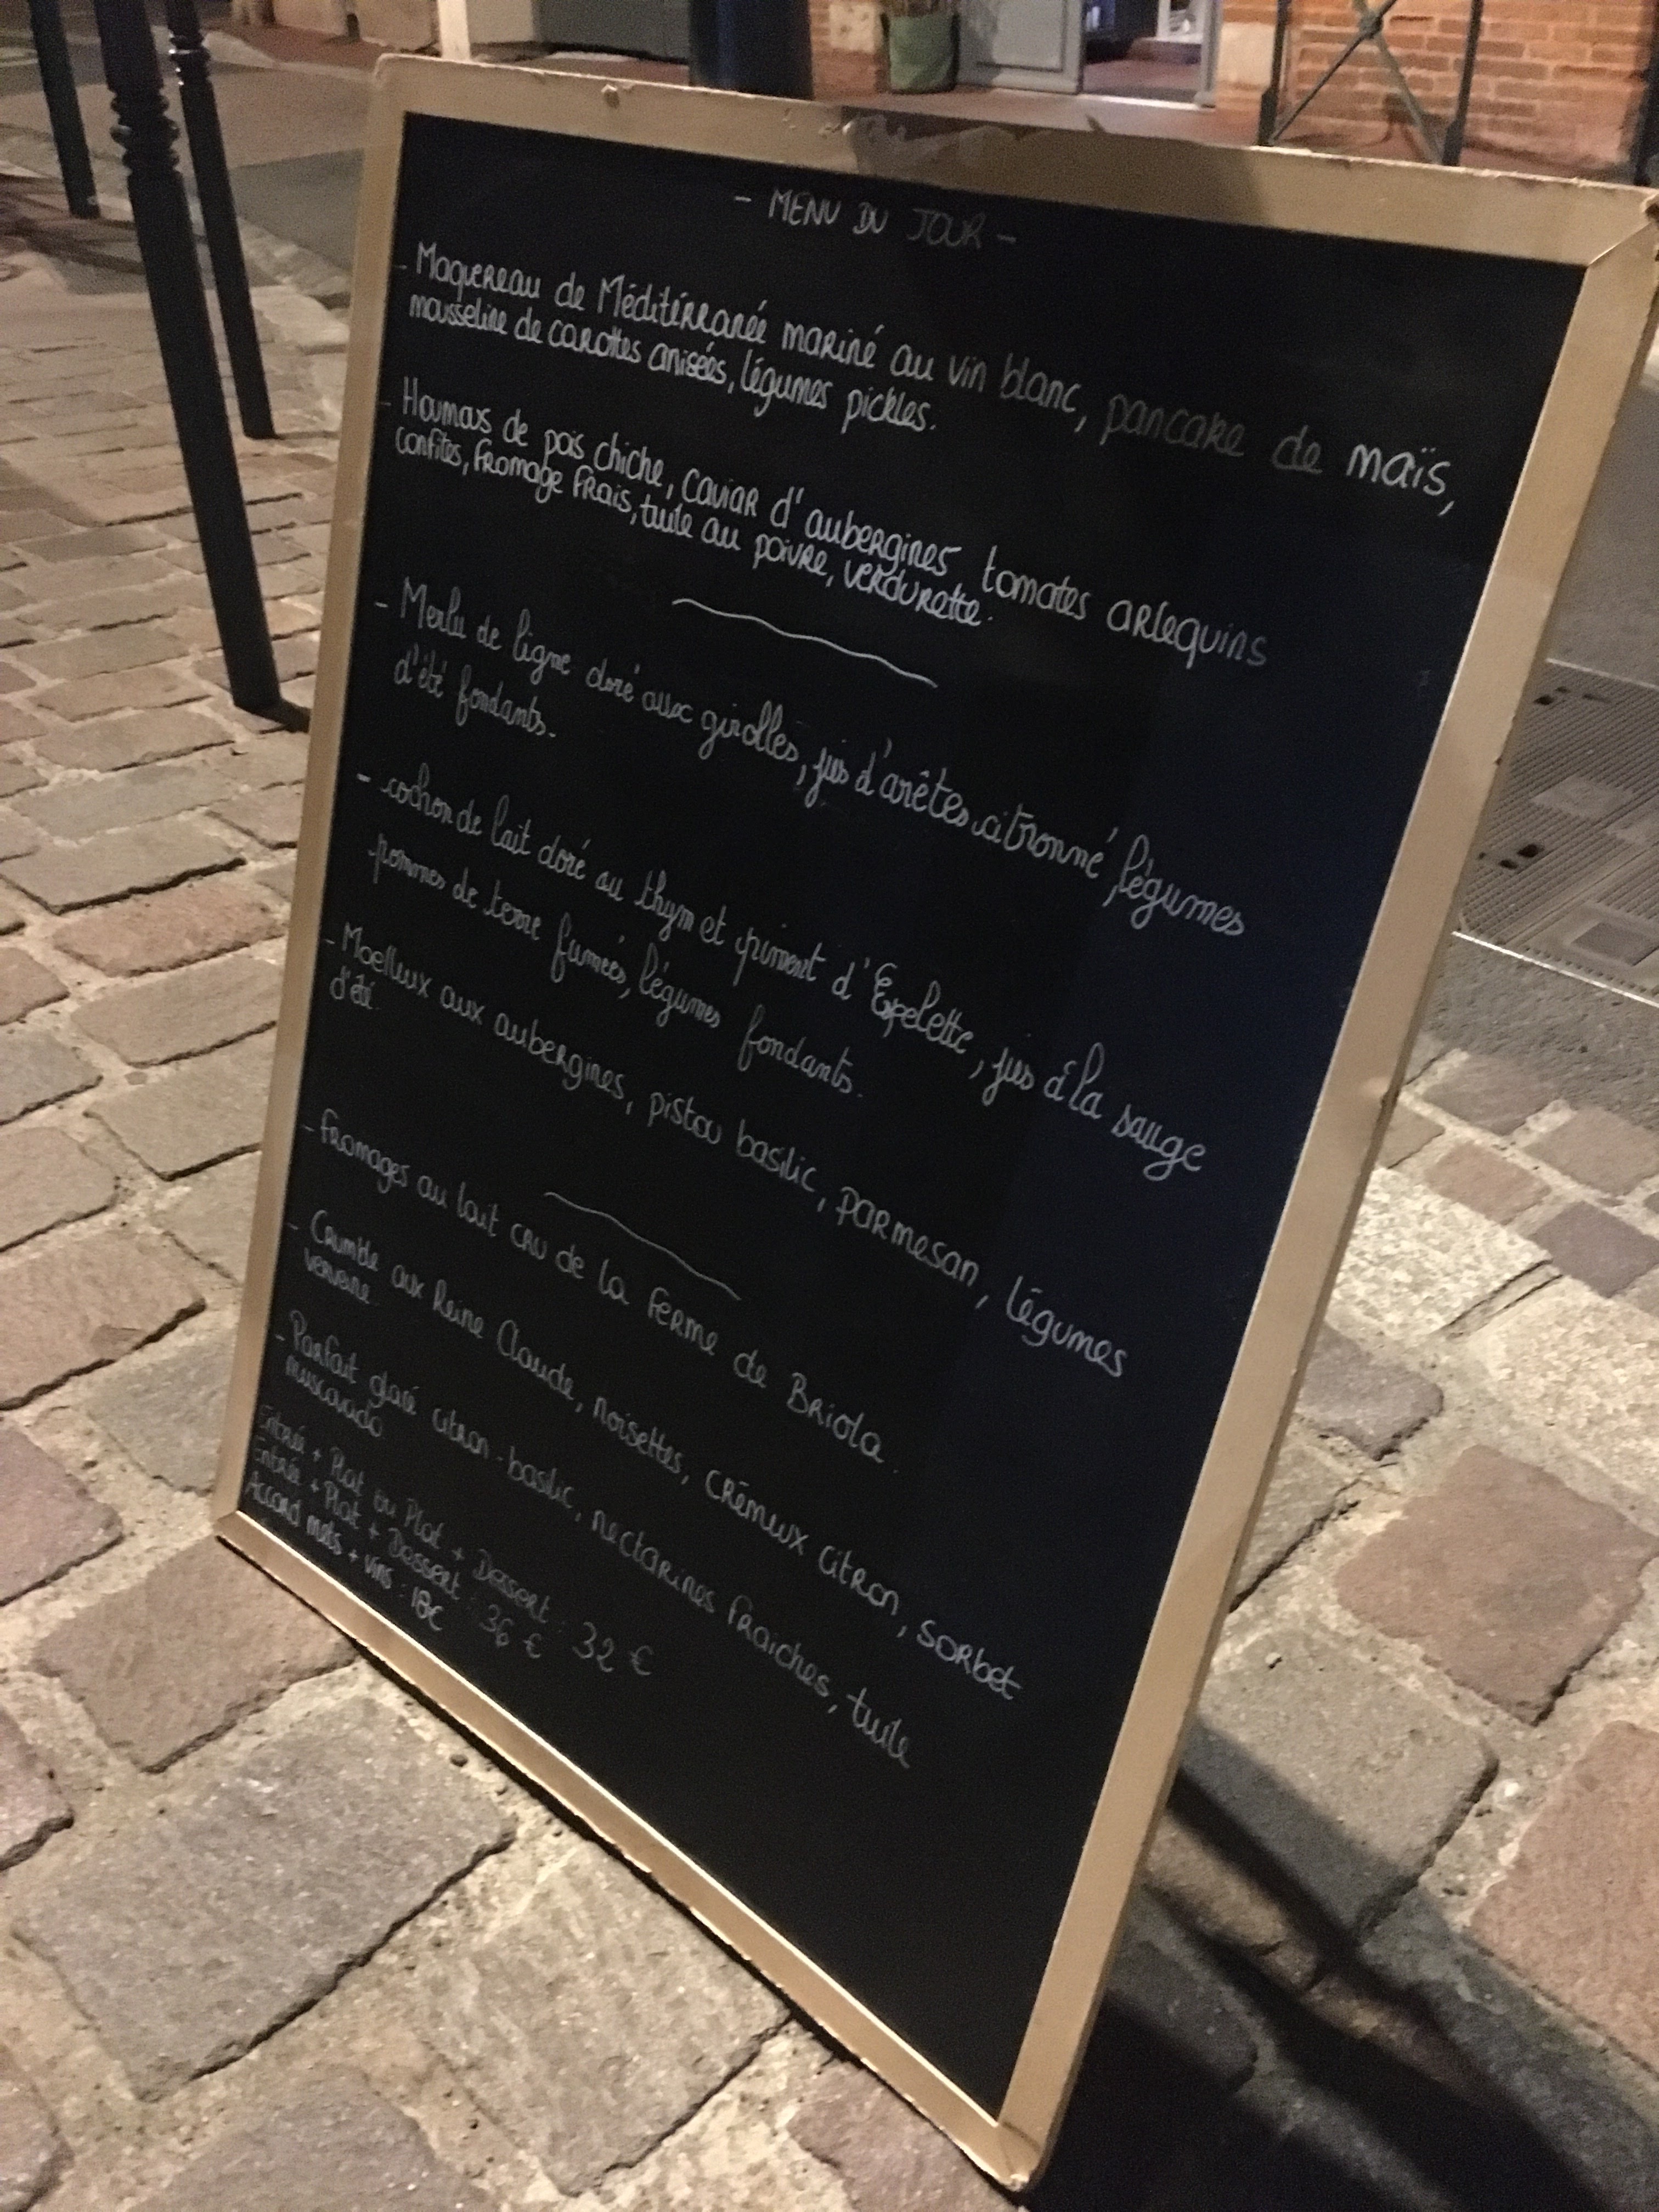 - MENU DU JOUR -
- Maquereau de Méditérranée mariné au vin blanc, pancake de maïs,
mousseline de carottes anisées, légumes pickles.
- Houmous de pois chiche, caviar d'aubergines tomates arlequins
confites, fromage frais, tuile au poivre, verdurette.
- Merlu de ligne doré aux girolles, jus d'arêtes citronné, légumes
d'été fondants.
- cochon de lait doré au thym et piment d'Espelette, jus à la sauge
pommes de terre fumées, légumes fondants.
- Moelleux aux aubergines, pistou basilic, parmesan, légumes
d'été.
- Fromages au lait cru de la Ferme de Briola.
- Crumble aux Reine Claude, noisettes, crémeux citron, sorbet
verveine.
- Parfait glacé citron-basilic, nectarines fraiches, tuile
muscovado
Entrée + Plat ou Plat + Dessert : 32 €
Entrée + Plat + Dessert : 36 €
Accord mets + vins : 18€